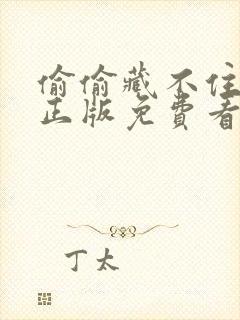 偷偷藏不住
正版免費看
丁太